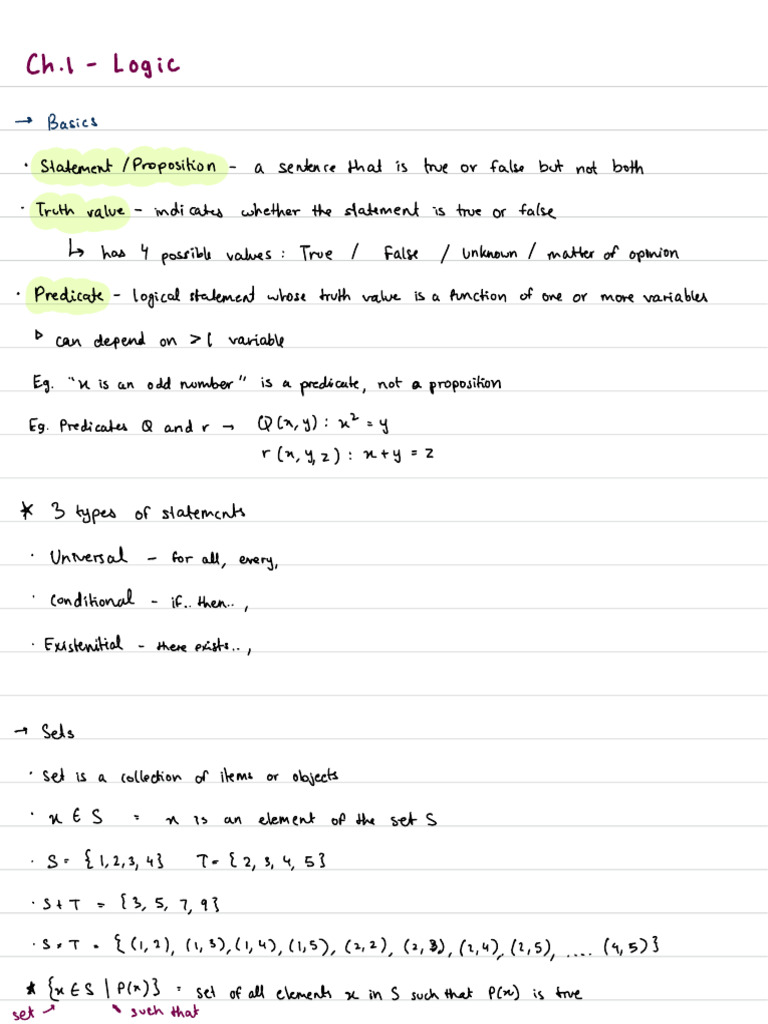 Ch.1 - Logic
→ Basics
· Statement / Proposition - a sentence that is true or false but not both
· Truth value - indicates whether the statement is true or false
↳ has 4 possible values : True / False / Unknown / matter of opinion
· Predicate - logical statement whose truth value is a function of one or more variables
▹ can depend on >1 variable
Eg. "x is an odd number" is a predicate, not a proposition
Eg. Predicates Q and r → Q(x,y) : x² = y
r(x,y,z) : x+y = z
* 3 types of statements
· Universal - for all, every,
· Conditional - if.. then.. ,
· Existenitial - there exists.. ,
→ Sets
· Set is a collection of items or objects
· x ∈ S = x is an element of the set S
· S = {1,2,3,4} T = {2,3,4,5}
· S+T = {3,5,7,9}
· S×T = {(1,2), (1,3),(1,4),(1,5),(2,2),(2,3),(2,4),(2,5), .... (4,5)}
* {x∈S | P(x)} = set of all elements x in S such that P(x) is true
set such that